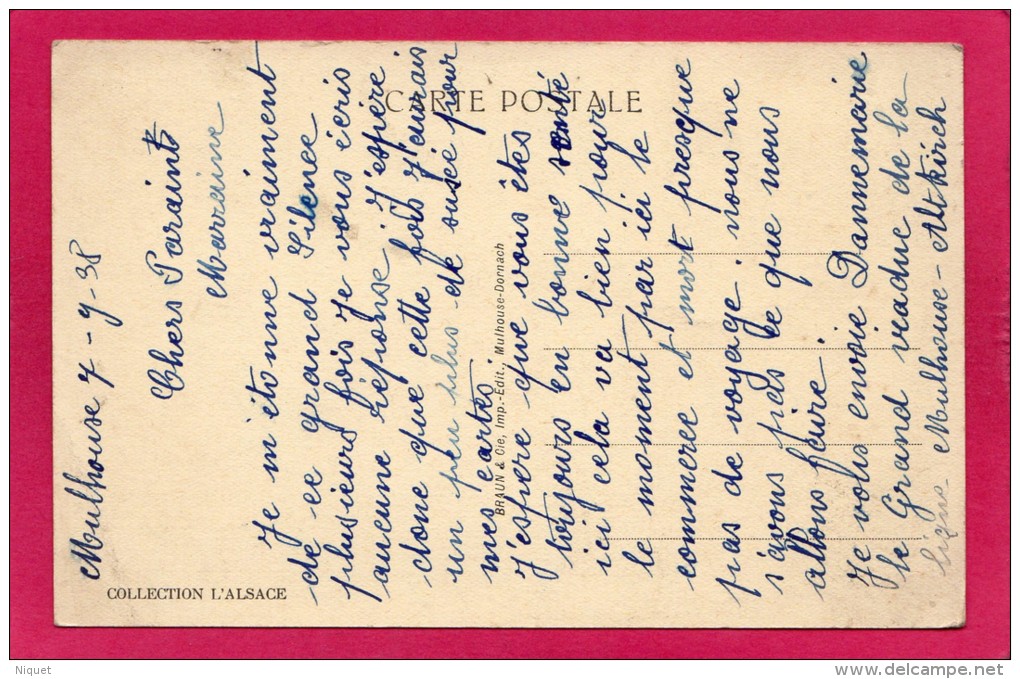 Mulhouse 7-9-38
Chers Paraint
Marraine
Je m'étonne vraiment
de ce grand Silence
plusieurs fois je vous écris
aucune réponse j'espère
donc que cette fois j'aurais
un peu plus de susé pour
mes cartes
J'espère que vous êtes
toujours en bonne santé
ici cela va bien pour
le moment par ici le
commerce et mort presque
pas de voyage nous ne
savons pas ce que nous
allons faire.
Je vous envoie Dannemarie
le Grand viaduc de la
ligne Mulhouse-Altkirch
CARTE POSTALE
BRAUN & Cie, Imp.-Edit., Mulhouse-Dornach
COLLECTION L'ALSACE
Niquet
www.delcampe.net